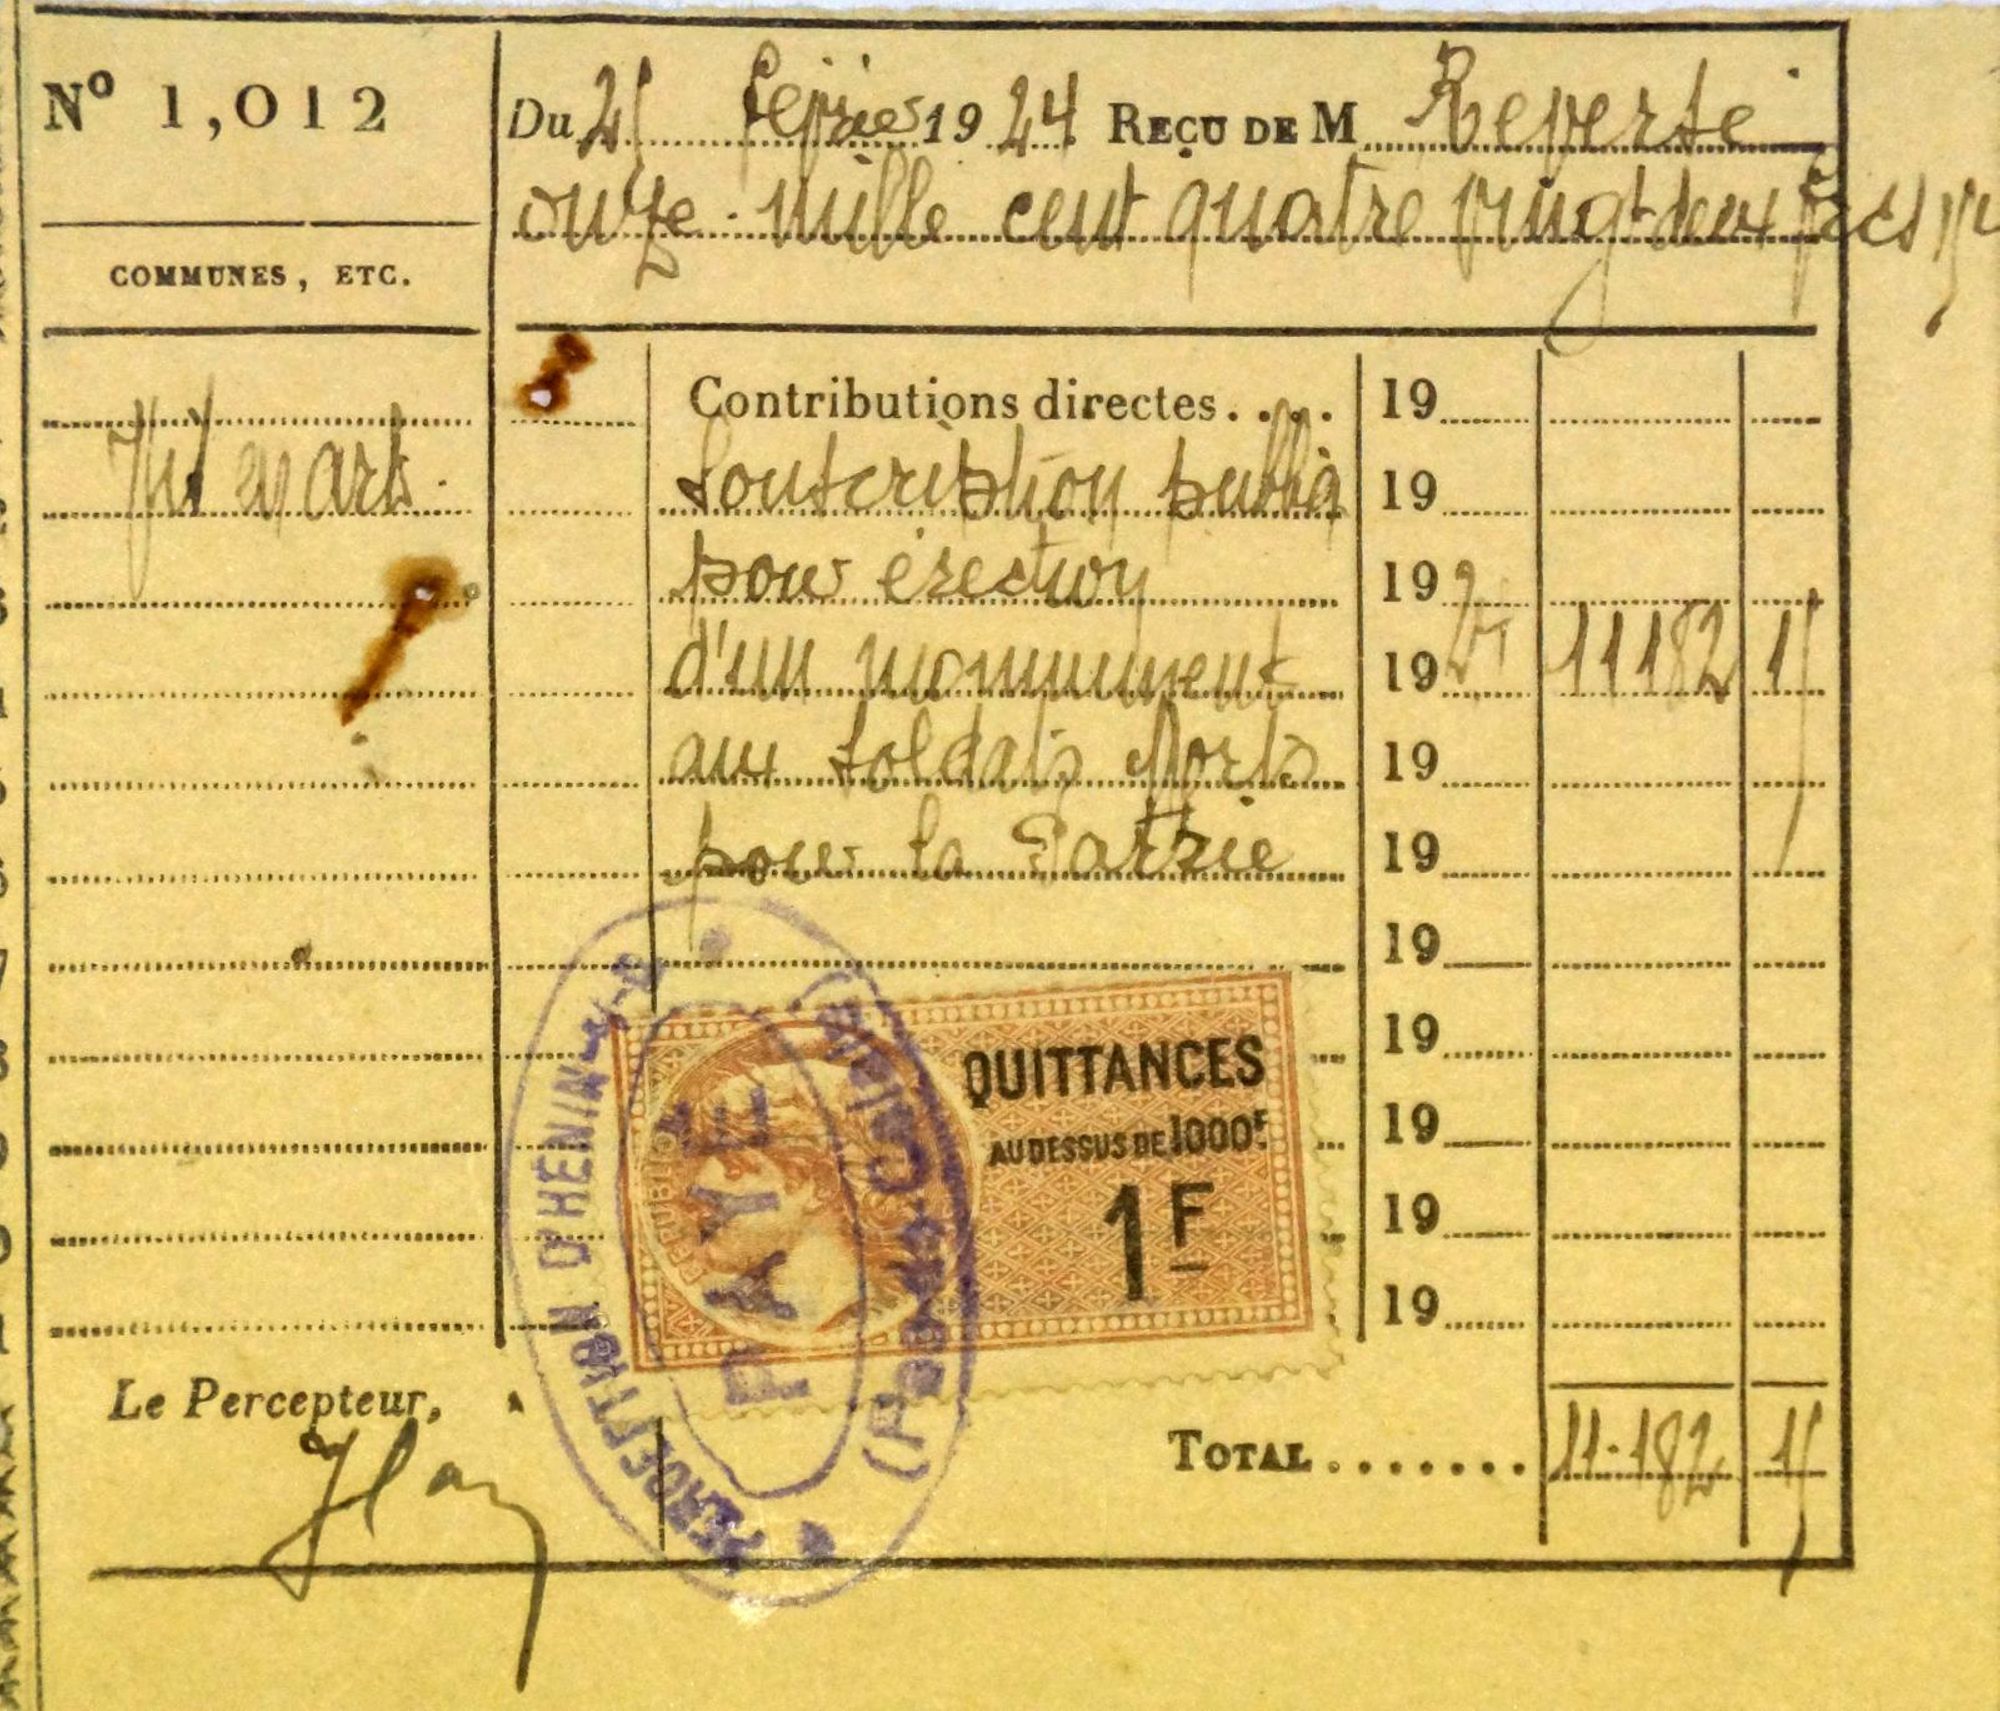 Nº 1,012
Du 21 février 1924 REÇU DE M Reverse
onze mille cent quatre vingt deux frcs
COMMUNES, ETC.
Contributions directes.... 19
Souscription publiq 19
pour érection 19
d'un monument 19 24 11182 15
aux soldats Morts 19
pour la Patrie 19
19
19
19
19
19
QUITTANCES
AU DESSUS DE 1000F
1F
PERCEPTION D'HÉNIN
PAYÉ
(Pas-de-Calais)
Le Percepteur,
TOTAL ....... 11.182 15